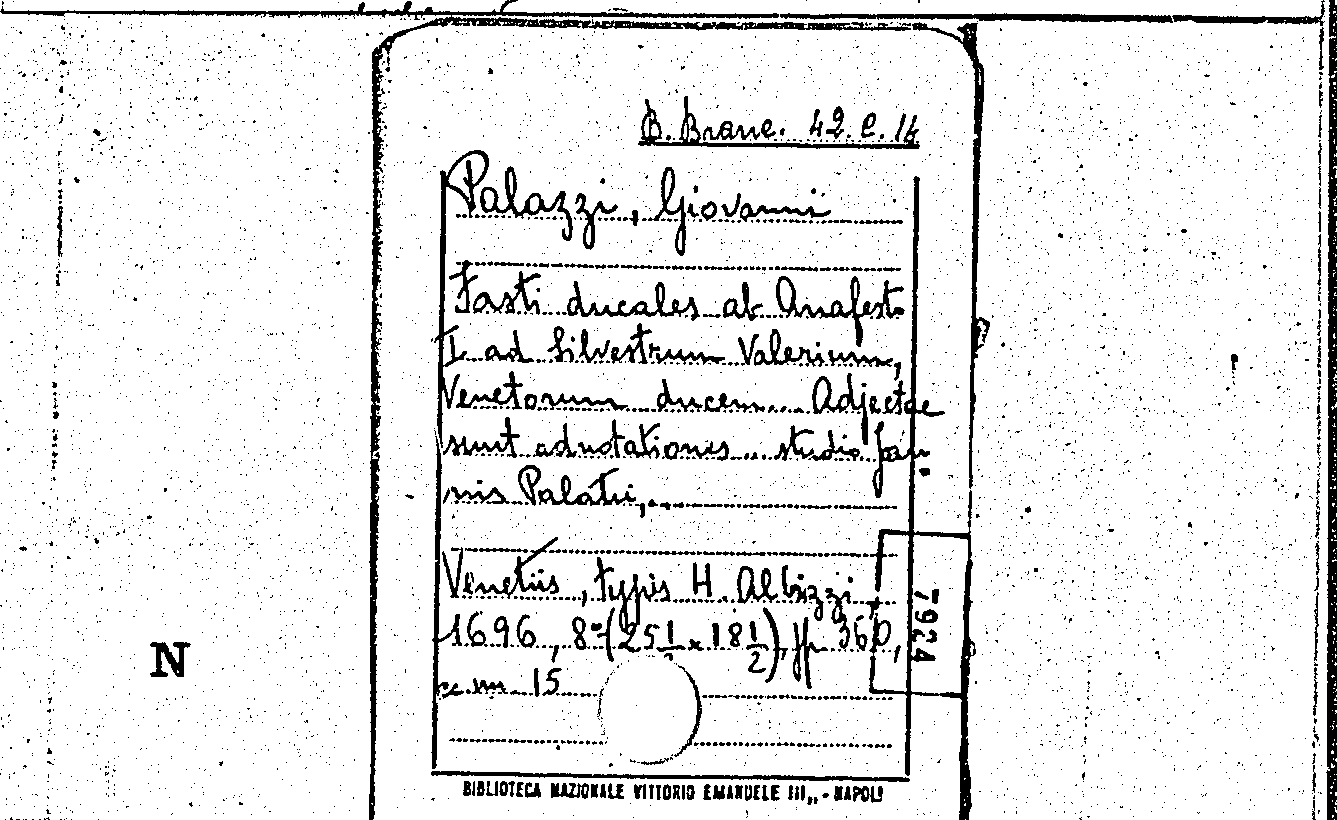 B. Branc. 42. C. 14
Palazzi, Giovanni
Fasti ducales ab Anafesto
I ad Silvestrum Valerium,
Venetorum ducem... Adjectae
sunt adnotationes... studio Joan-
nis Palatii,...
Venetiis, typis H. Albrizzi
1696, 8º (25 1/2 x 18 1/2), pp. 360,
cc.nn. 15
7924
N
BIBLIOTECA NAZIONALE VITTORIO EMANUELE III„ - NAPOLI